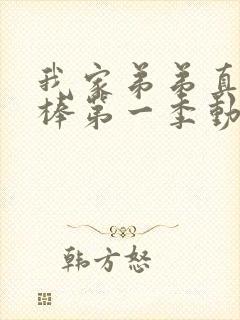 我家弟弟真
棒第一季動
韩方怒